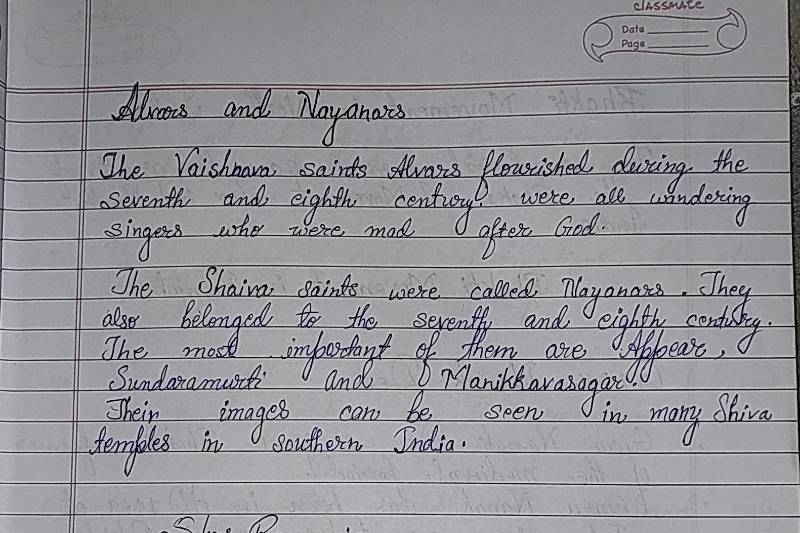 CLASSMATE
Date
Page
Alvars and Nayanars
The Vaishnava saints Alvars flourished during the
seventh and eighth century. were all wandering
singers who were mad after God.
The Shaiva saints were called Nayanars. They
also belonged to the seventh and eighth century.
The most important of them are Appear,
Sundaramurti and Manikkavasagar.
Their images can be seen in many Shiva
temples in southern India.